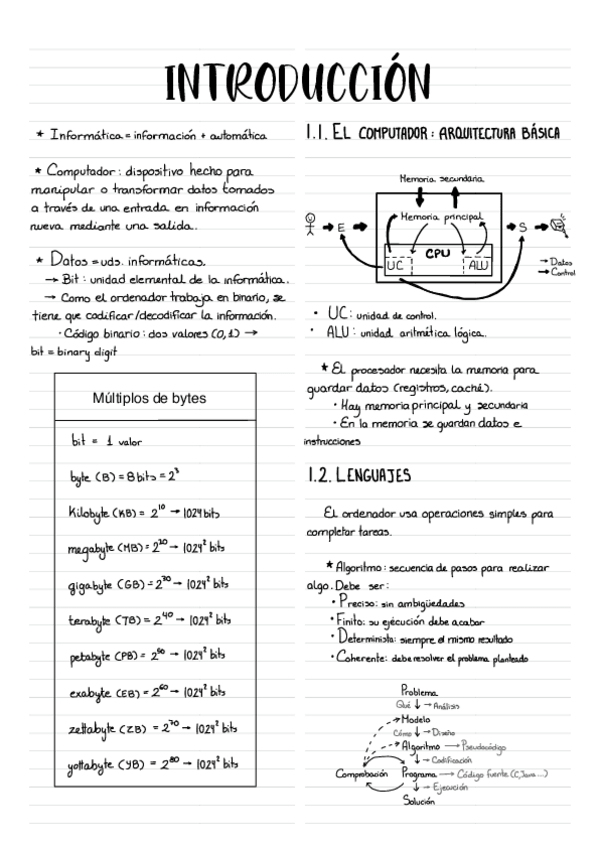 INTRODUCCIÓN
* Informática = información + automática
* Computador: dispositivo hecho para
manipular o transformar datos tomados
a través de una entrada en información
nueva mediante una salida..
* Datos = uds. informáticas.
→ Bit: unidad elemental de la informática.
→ Como el ordenador trabaja en binario, se
tiene que codificar/decodificar la información.
· Código binario: dos valores (0,1) →
bit = binary digit
Múltiplos de bytes
bit = 1 valor
byte (B) = 8 bits = 2³
Kilobyte (KB) = 2¹⁰ → 1024 bits
megabyte (MB) = 2²⁰ → 1024² bits
gigabyte (GB) = 2³⁰ → 1024² bits
terabyte (TB) = 2⁴⁰ → 1024² bits
petabyte (PB) = 2⁵⁰ → 1024² bits
exabyte (EB) = 2⁶⁰ → 1024² bits
zettabyte (ZB) = 2⁷⁰ → 1024² bits
yottabyte (YB) = 2⁸⁰ → 1024² bits
1.1. EL COMPUTADOR: ARQUITECTURA BÁSICA
Memoria secundaria
Memoria principal
E
S
CPU
UC
ALU
→ Datos
→ Control
· UC: unidad de control.
· ALU: unidad aritmética lógica..
* El procesador necesita la memoria para
guardar datos (registros, caché).
· Hay memoria principal y secundaria
· En la memoria se guardan datos e
instrucciones
1.2. LENGUAJES
El ordenador usa operaciones simples para
completar tareas.
* Algoritmo: secuencia de pasos para realizar
algo. Debe ser:
· Preciso: sin ambigüedades
· Finito: su ejecución debe acabar
· Determinista: siempre el mismo resultado
· Coherente: debe resolver el problema planteado
Problema
Qué ↓ → Análisis
Modelo
Cómo ↓ → Diseño
Algoritmo → Pseudocódigo
↓ → Codificación
Comprobación Programa → Código fuente (C, Java...)
Cómo ↓ → Ejecución
Solución